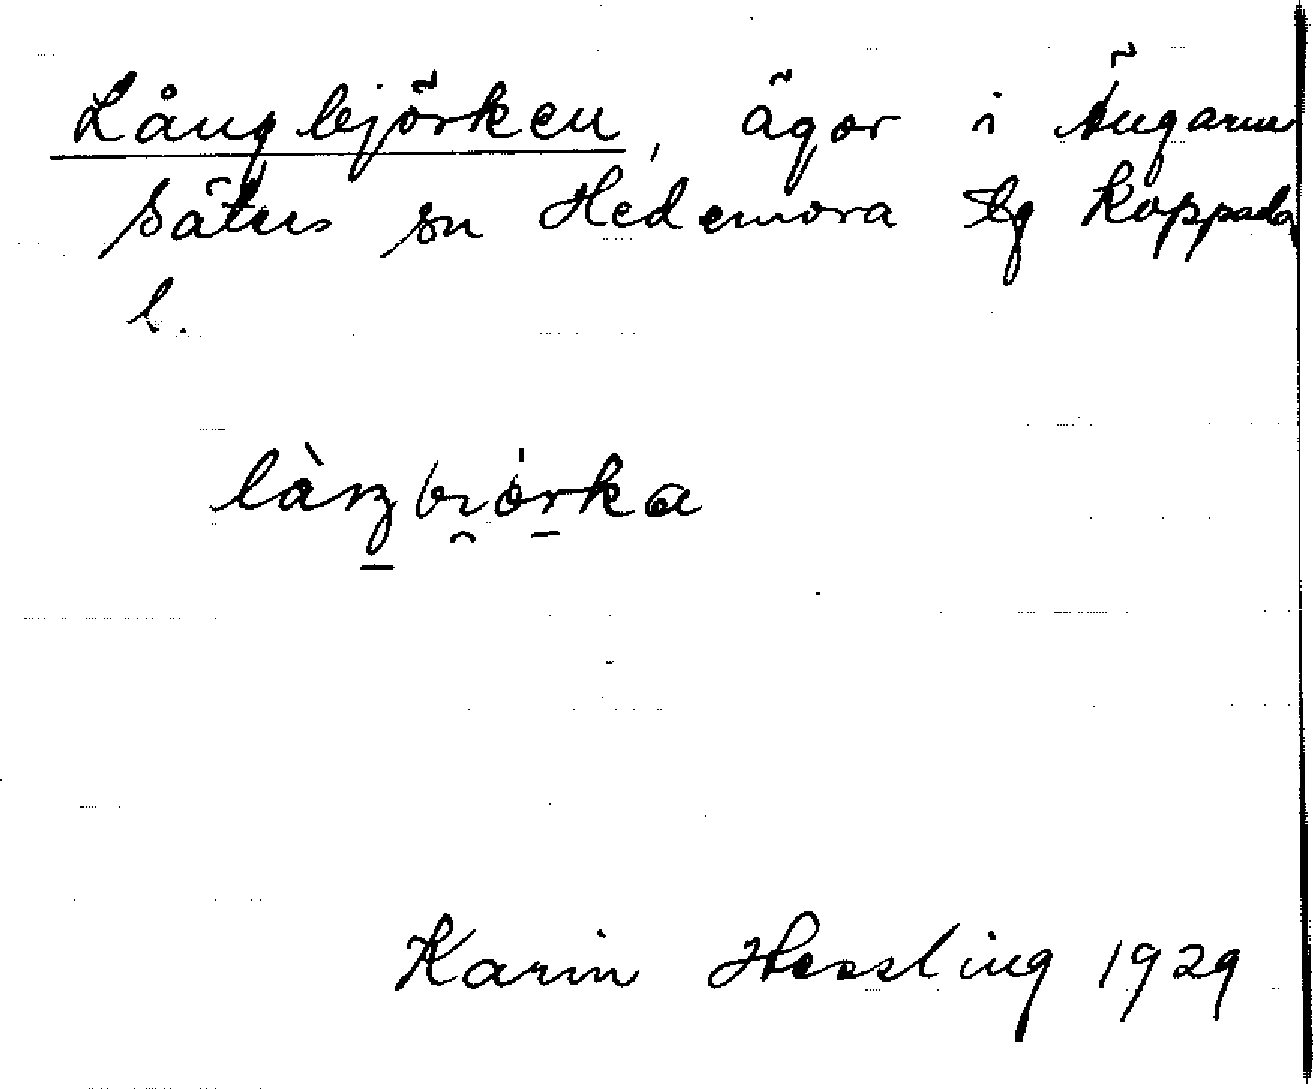 Långbjörken, ägor i Ängarne
Säters sn Hedemora tg Koppada
l.
làŋbjörka
Karin Hessling 1929